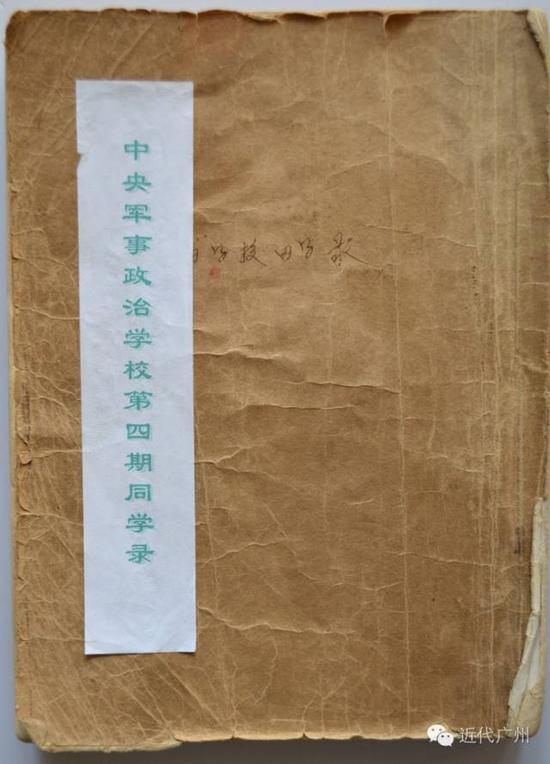 中央军事政治学校第四期同学录
学校同学录
近代广州